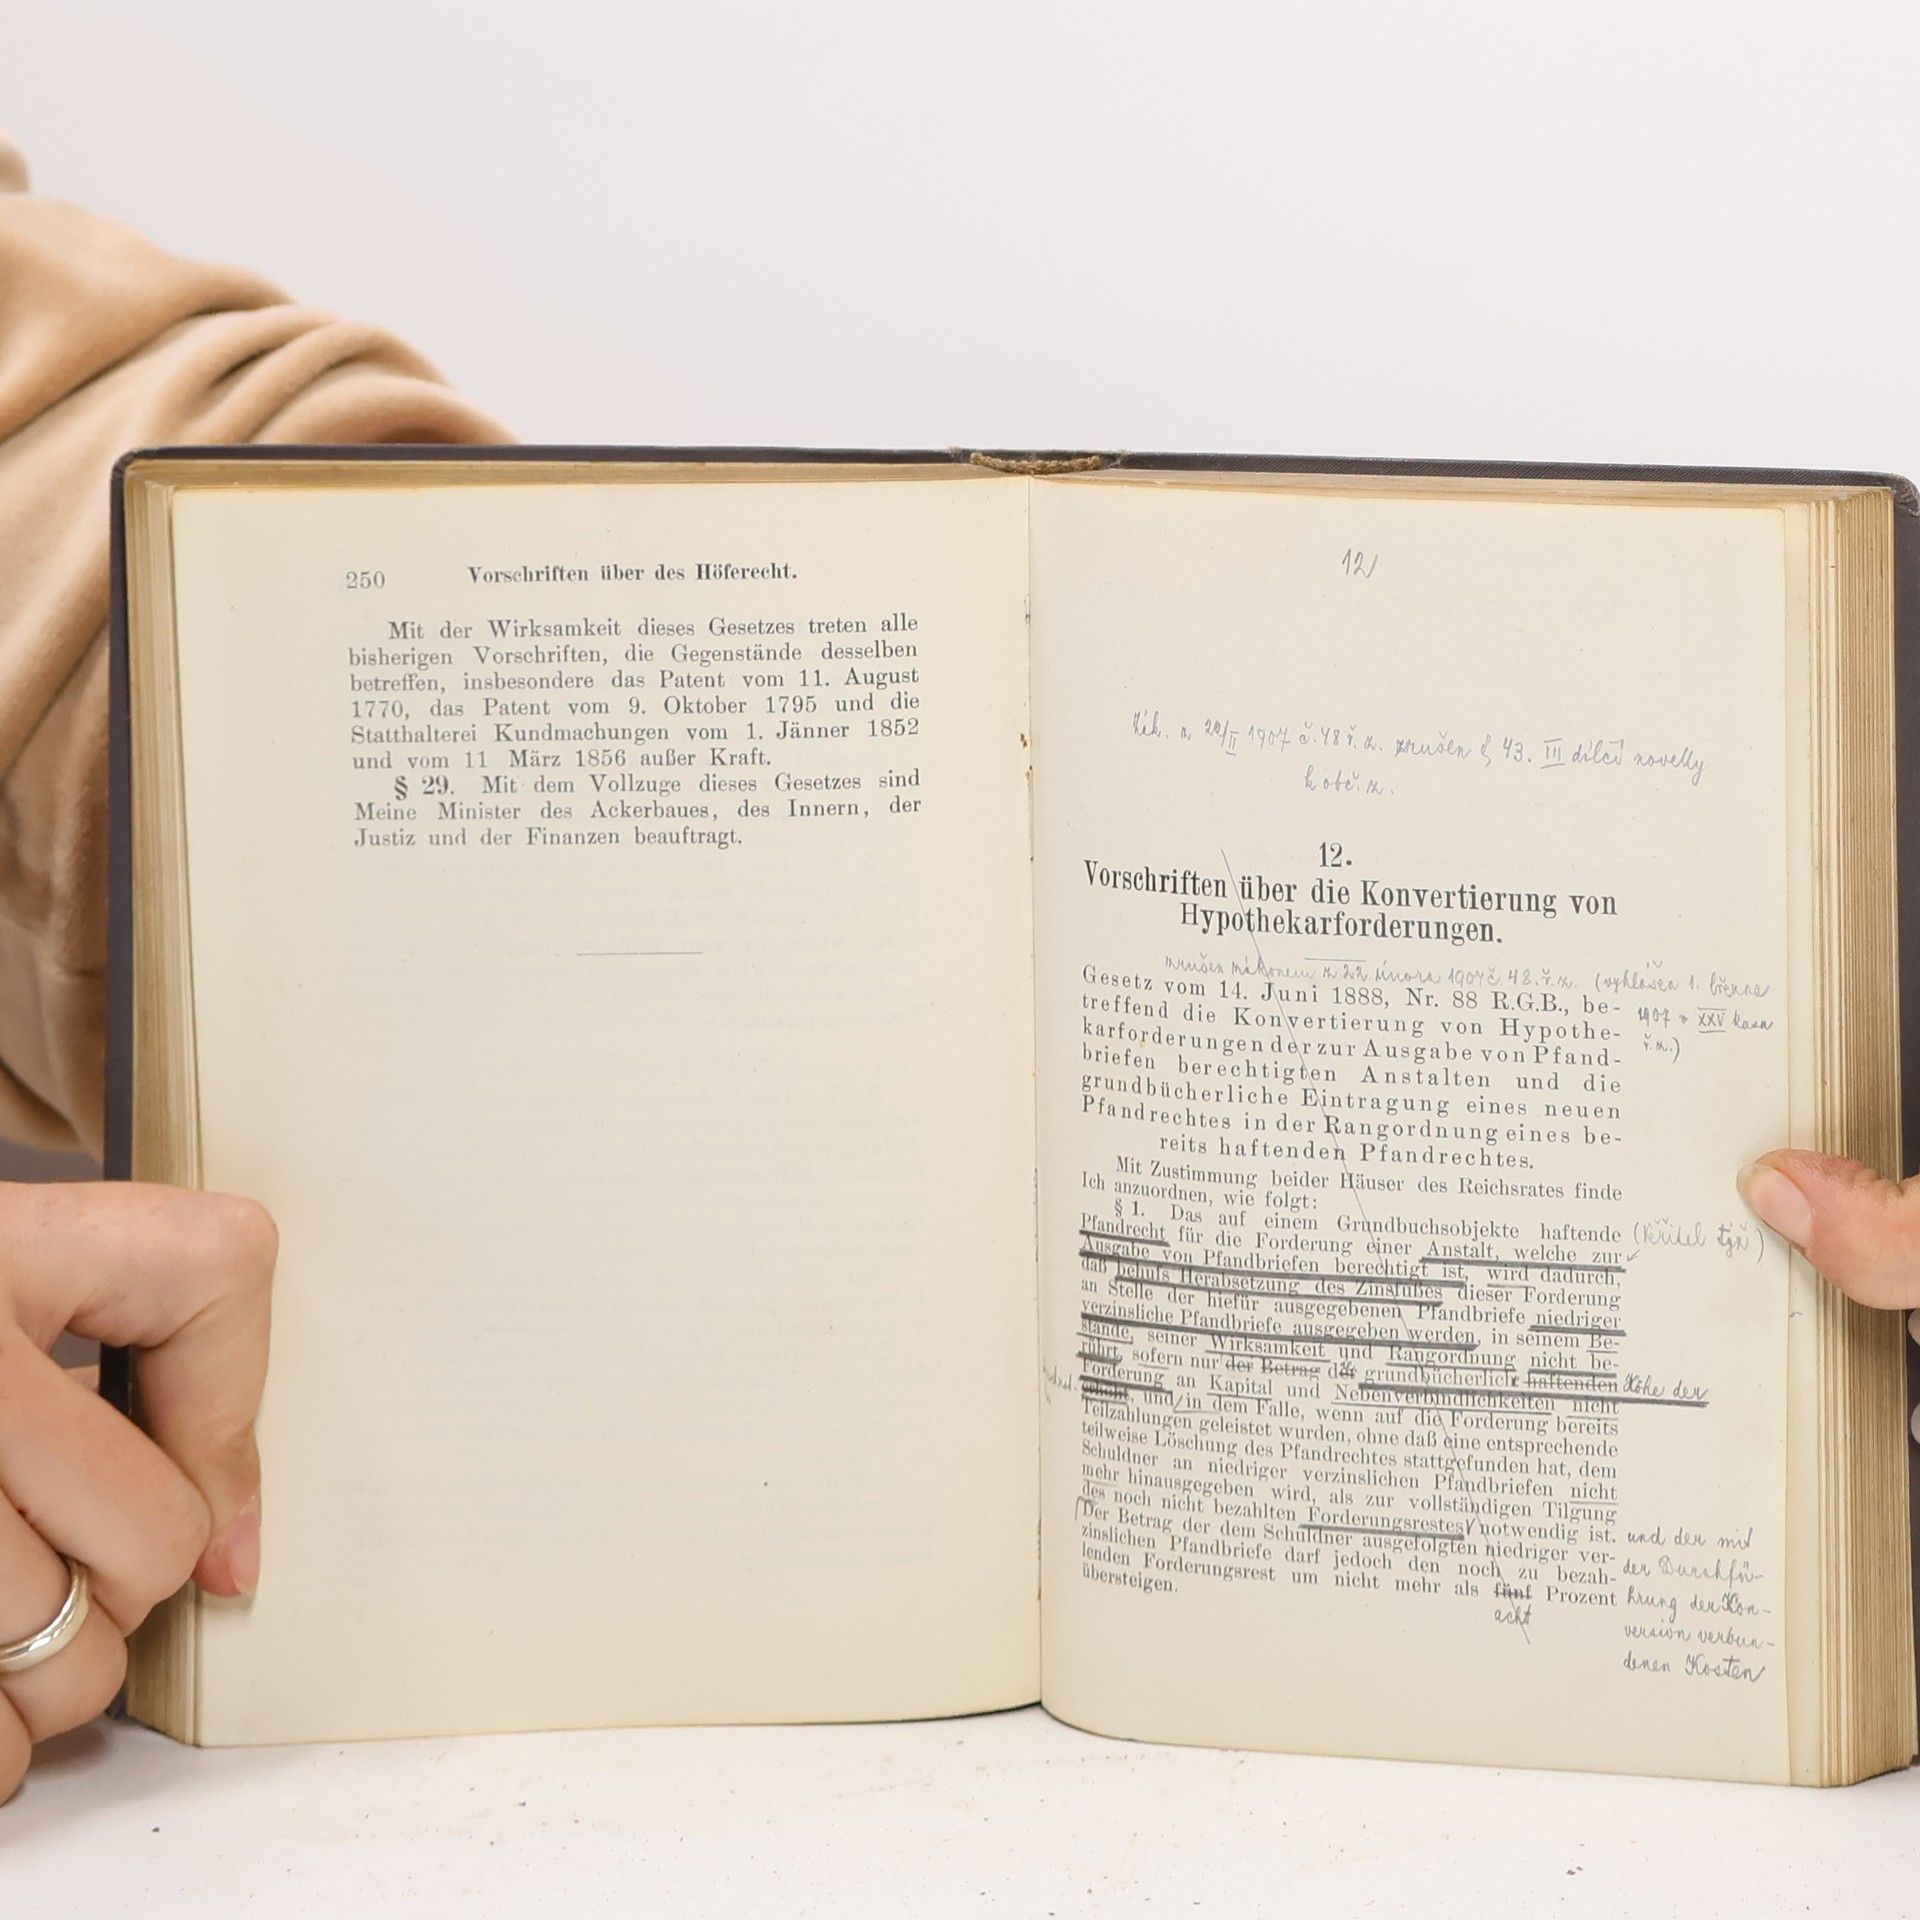 250 Vorschriften über des Höferecht.
Mit der Wirksamkeit dieses Gesetzes treten alle
bisherigen Vorschriften, die Gegenstände desselben
betreffen, insbesondere das Patent vom 11. August
1770, das Patent vom 9. Oktober 1795 und die
Statthalterei Kundmachungen vom 1. Jänner 1852
und vom 11 März 1856 außer Kraft.
§ 29. Mit dem Vollzuge dieses Gesetzes sind
Meine Minister des Ackerbaues, des Innern, der
Justiz und der Finanzen beauftragt.
12
Zák. z 22/II 1907 č. 48 ř. z. zrušen § 43. III dílčí novelly
k obč. z.
12.
Vorschriften über die Konvertierung von
Hypothekarforderungen.
zrušen zákonem z 22 února 1907 č. 48. ř. z. (vyhlášen 1. března
1907 v XXV
ř. z.)
Gesetz vom 14. Juni 1888, Nr. 88 R.G.B., be-
treffend die Konvertierung von Hypothe-
karforderungen der zur Ausgabe von Pfand-
briefen berechtigten Anstalten und die
grundbücherliche Eintragung eines neuen
Pfandrechtes in der Rangordnung eines be-
reits haftenden Pfandrechtes.
Mit Zustimmung beider Häuser des Reichsrates finde
Ich anzuordnen, wie folgt:
§ 1. Das auf einem Grundbuchsobjekte haftende
Pfandrecht für die Forderung einer Anstalt, welche zur
Ausgabe von Pfandbriefen berechtigt ist, wird dadurch,
daß behufs Herabsetzung des Zinsfußes dieser Forderung
an Stelle der hiefür ausgegebenen Pfandbriefe niedriger
verzinsliche Pfandbriefe ausgegeben werden, in seinem Be-
stande, seiner Wirksamkeit und Rangordnung nicht be-
rührt, sofern nur der Betrag der grundbücherlich haftenden Höhe der
Forderung an Kapital und Nebenverbindlichkeiten nicht
erhöht, und in dem Falle, wenn auf die Forderung bereits
Teilzahlungen geleistet wurden, ohne daß eine entsprechende
teilweise Löschung des Pfandrechtes stattgefunden hat, dem
Schuldner an niedriger verzinslichen Pfandbriefen nicht
mehr hinausgegeben wird, als zur vollständigen Tilgung
des noch nicht bezahlten Forderungsrestes notwendig ist.
Der Betrag der dem Schuldner ausgefolgten niedriger ver-
zinslichen Pfandbriefe darf jedoch den noch zu bezah-
lenden Forderungsrest um nicht mehr als fünf Prozent
übersteigen.
acht
und der mit
der Durchfü-
hrung der Kon-
version verbun-
denen Kosten